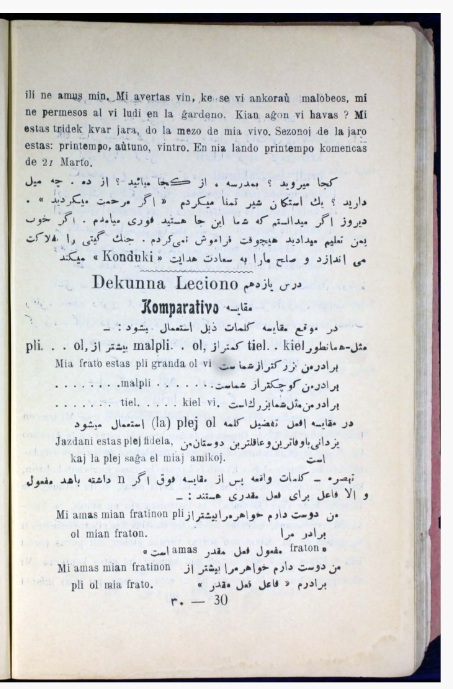 ili ne amus min. Mi avertas vin, ke se vi ankoraŭ malobeos, mi
ne permesos al vi ludi en la ĝardeno. Kian aĝon vi havas ? Mi
estas tridek kvar jara, do la mezo de mia vivo. Sezonoj de la jaro
estas: printempo, aŭtuno, vintro. En nia lando printempo komencas
de 21 Marto.
کجا میروید ؟ بمدرسه . از کجا میائید ؟ از ده . چه میل
دارید ؟ یك استکان شیر تمنا میکردم « اگر مرحمت میکردید » .
دیروز اگر میدانستم که شما این جا هستید فوری میامدم . اگر خوب
بمن تعلیم میدادید هیچوقت فراموش نمی‌کردم . جنك گیتی را بفلاکت
می اندازد و صلح مارا به سعادت هدایت « Konduki » میکند
Dekunna Leciono درس یازدهم
Komparativo مقایسه
در موقع مقایسه کلمات ذیل استعمال یشود : ــ
pli. . . ol, بیشتر از malpli. . ol, کمتر از tiel. . kiel مثل-همانطور
Mia frato estas pli granda ol vi برادر من بزرگتر از شما ست
. . . . . . . . malpli . . . . . . . برادر من کوچکتر از شماست
. . . . . . . . tiel. . . . . kiel vi. برادر من مثل شما بزرك است
در مقایسه افعل تفضیل کلمه la) plej ol) استعمال میشود
Jazdani estas plej fidela, یزدانی باوفاترین و عاقلترین دوستان من
kaj la plej saĝa el miaj amikoj. است
تبصره ــ کلمات واقعه پس از مقایسه فوق اگر n داشته باهد مفعول
و الا فاعل برای فعل مقدری هستند : ــ
Mi amas mian fratinon pli من دوست دارم خواهر مرا بیشتر از
ol mian fraton. برادر مرا
« fraton مفعول فعل مقدر amas است »
Mi amas mian fratinon من دوست دارم خواهر مرا بیشتر از
pli ol mia frato. برادرم « فاعل فعل مقدر »
۳۰ — 30